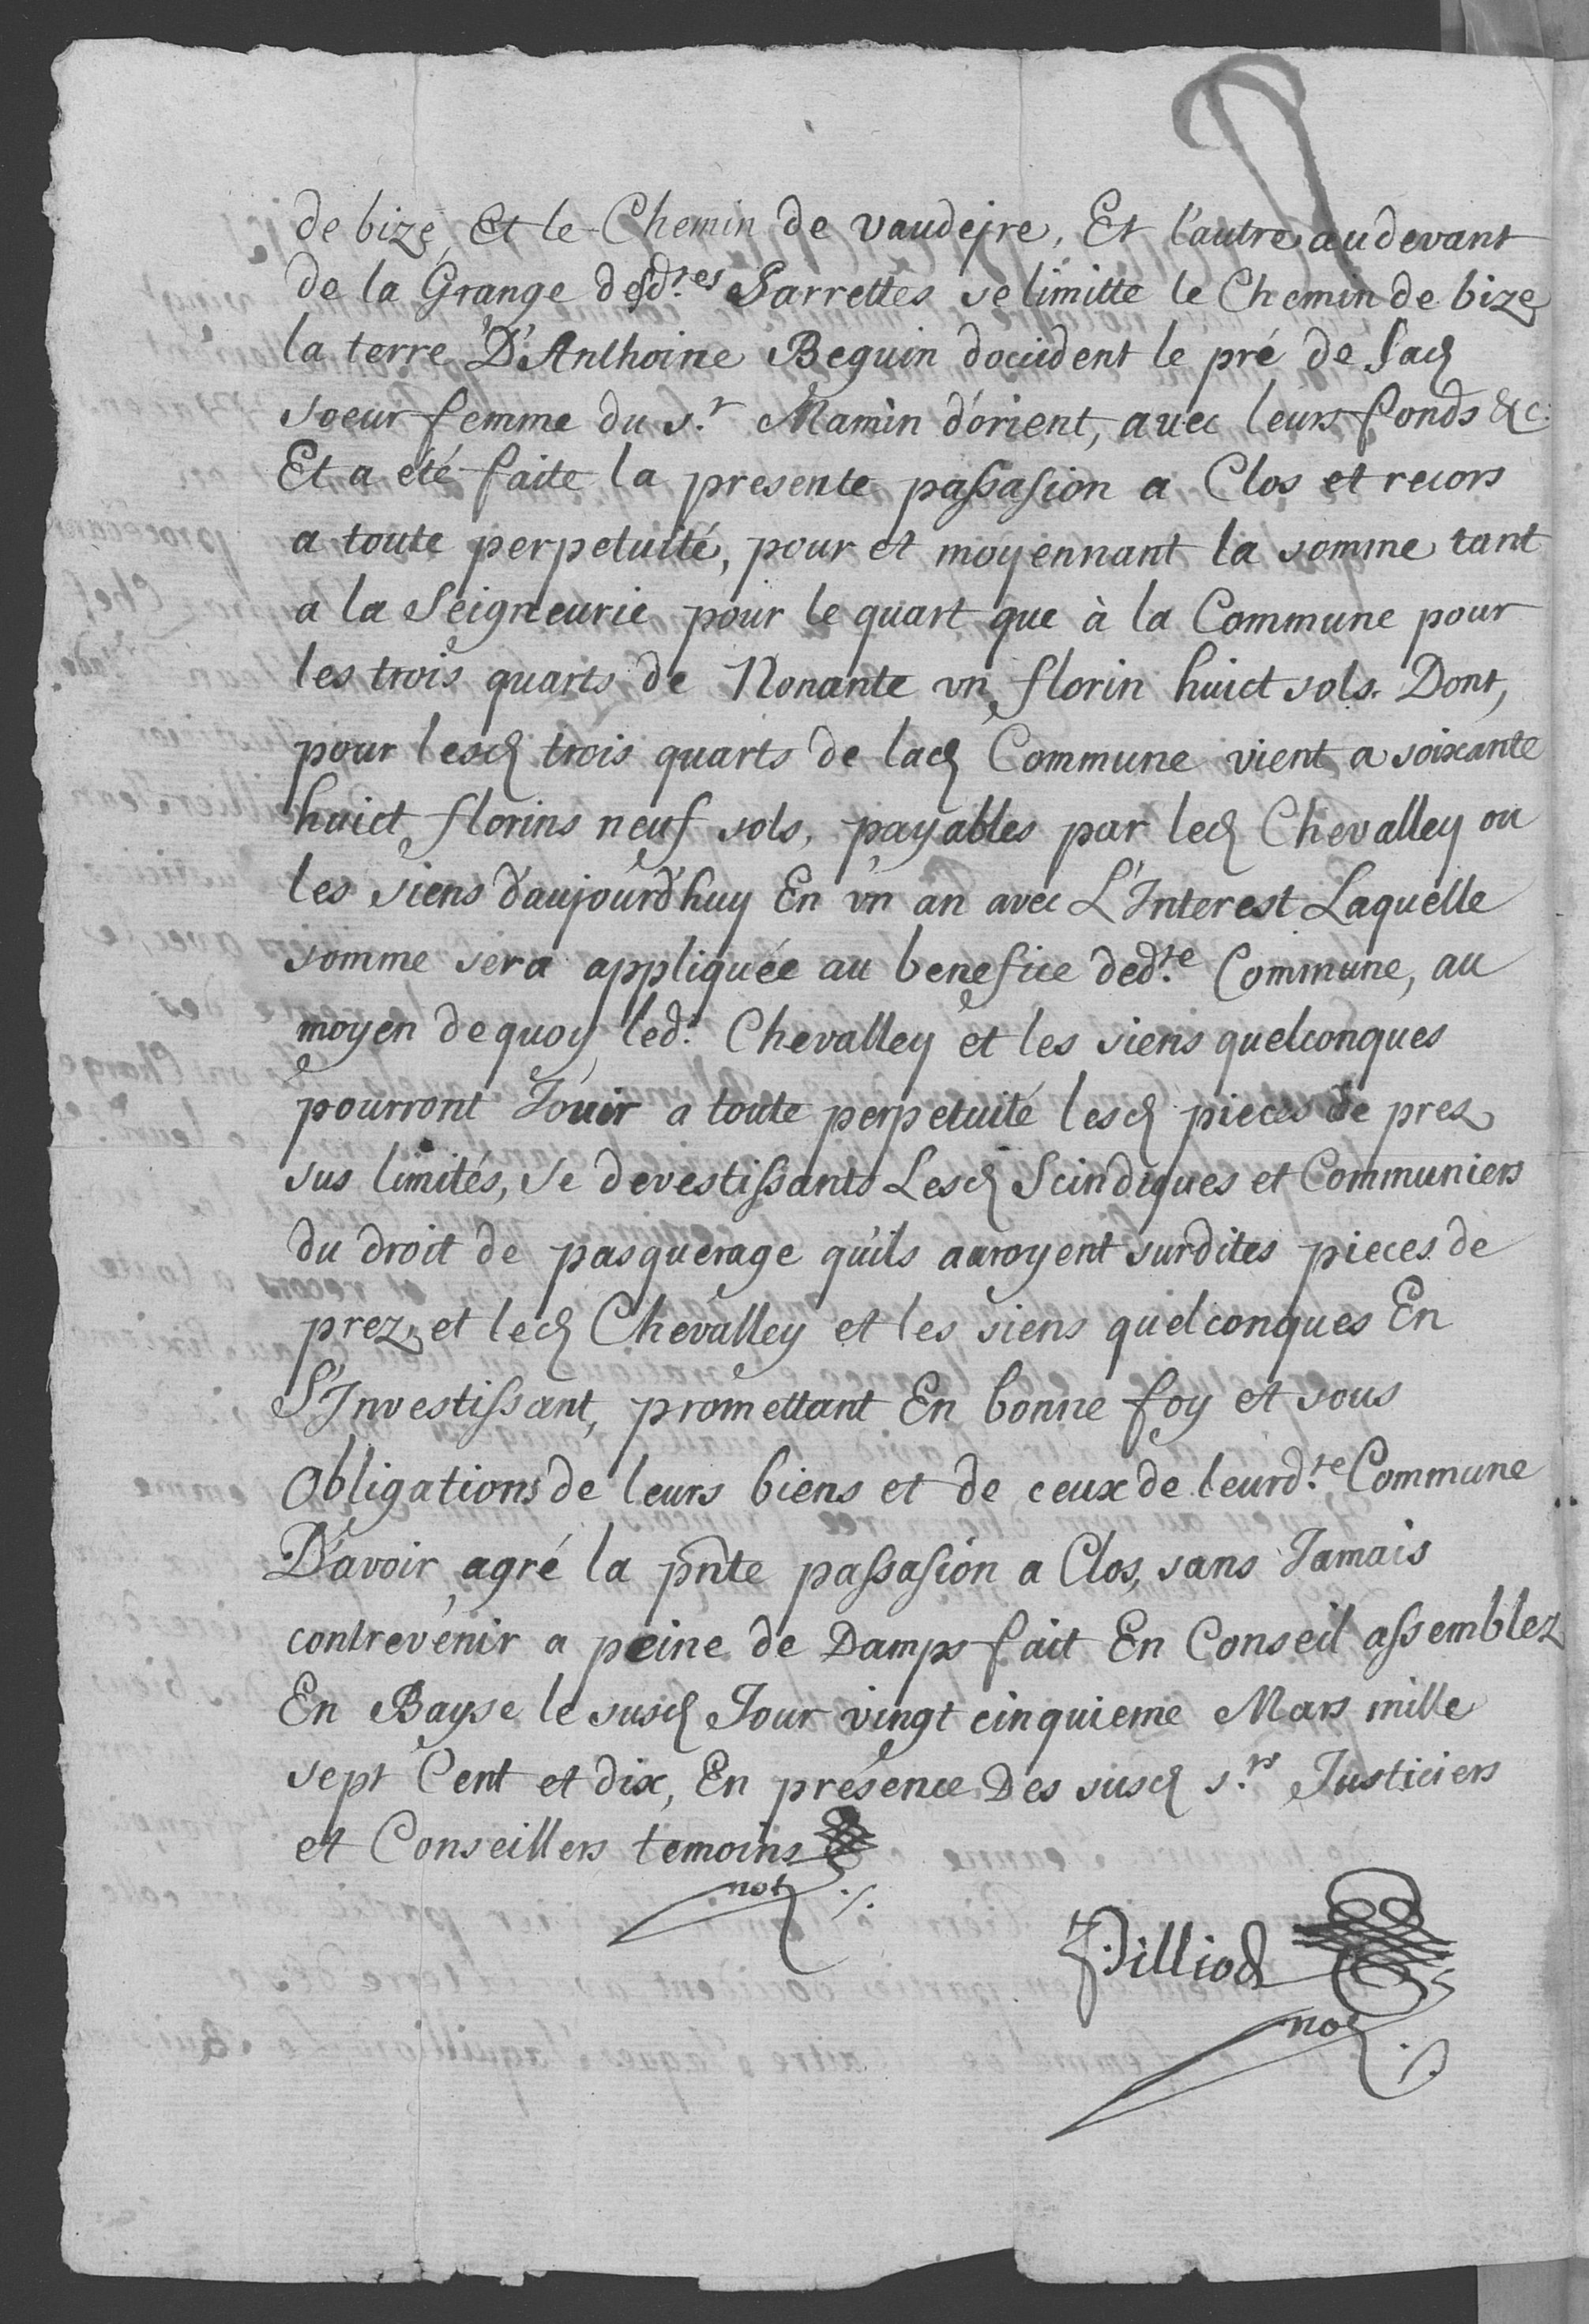 de bize, Et le Chemin de vaudejre, Et l'autre audevant
de la Grange desd.tes Sarrettes se limitte le Chemin de bize
la terre D'Anthoine Beguin doccident le pré de Sad
soeur femme du s.r Mamin d'orient, avec leurs fonds &c:
Et a eté faite la presente passasion a Clos et recors
a toute perpetuité, pour et moyennant la somme tant
a la Seigneurie pour le quart que à la Commune pour
les trois quarts de Nonante vn florin huict sols. Dont,
pour lesd trois quarts de lad Commune vient a soixante
huict florins neuf sols, payables par led Chevalley ou
les siens d'aujourd'huy En vn an avec L'Interest Laquelle
somme sera appliquée au benefice ded.te Commune, au
moyen dequoy led. Chevalley et les siens quelconques
pourront Jouir a toute perpetuité lesd pieces de prez
sus limités, se devestissants Lesd Scindiques et Communiers
du droit de pasquerage qu'ils auroyent surdites pieces de
prez, et led Chevalley et les siens quelconques En
S'Investissant, promettant En bonne foy et sous
Obligations de leurs biens et de ceux de leurd.te Commune
D'avoir agré la pnte passasion a Clos, sans Jamais
contrevenir a peine de Damps fait En Conseil assemblez
En Bayse le susd Jour vingt cinquieme Mars mille
sept Cent et dix, En présence Des susd s.rs Justiciers
et Conseillers temoins
not
Pilliod
not